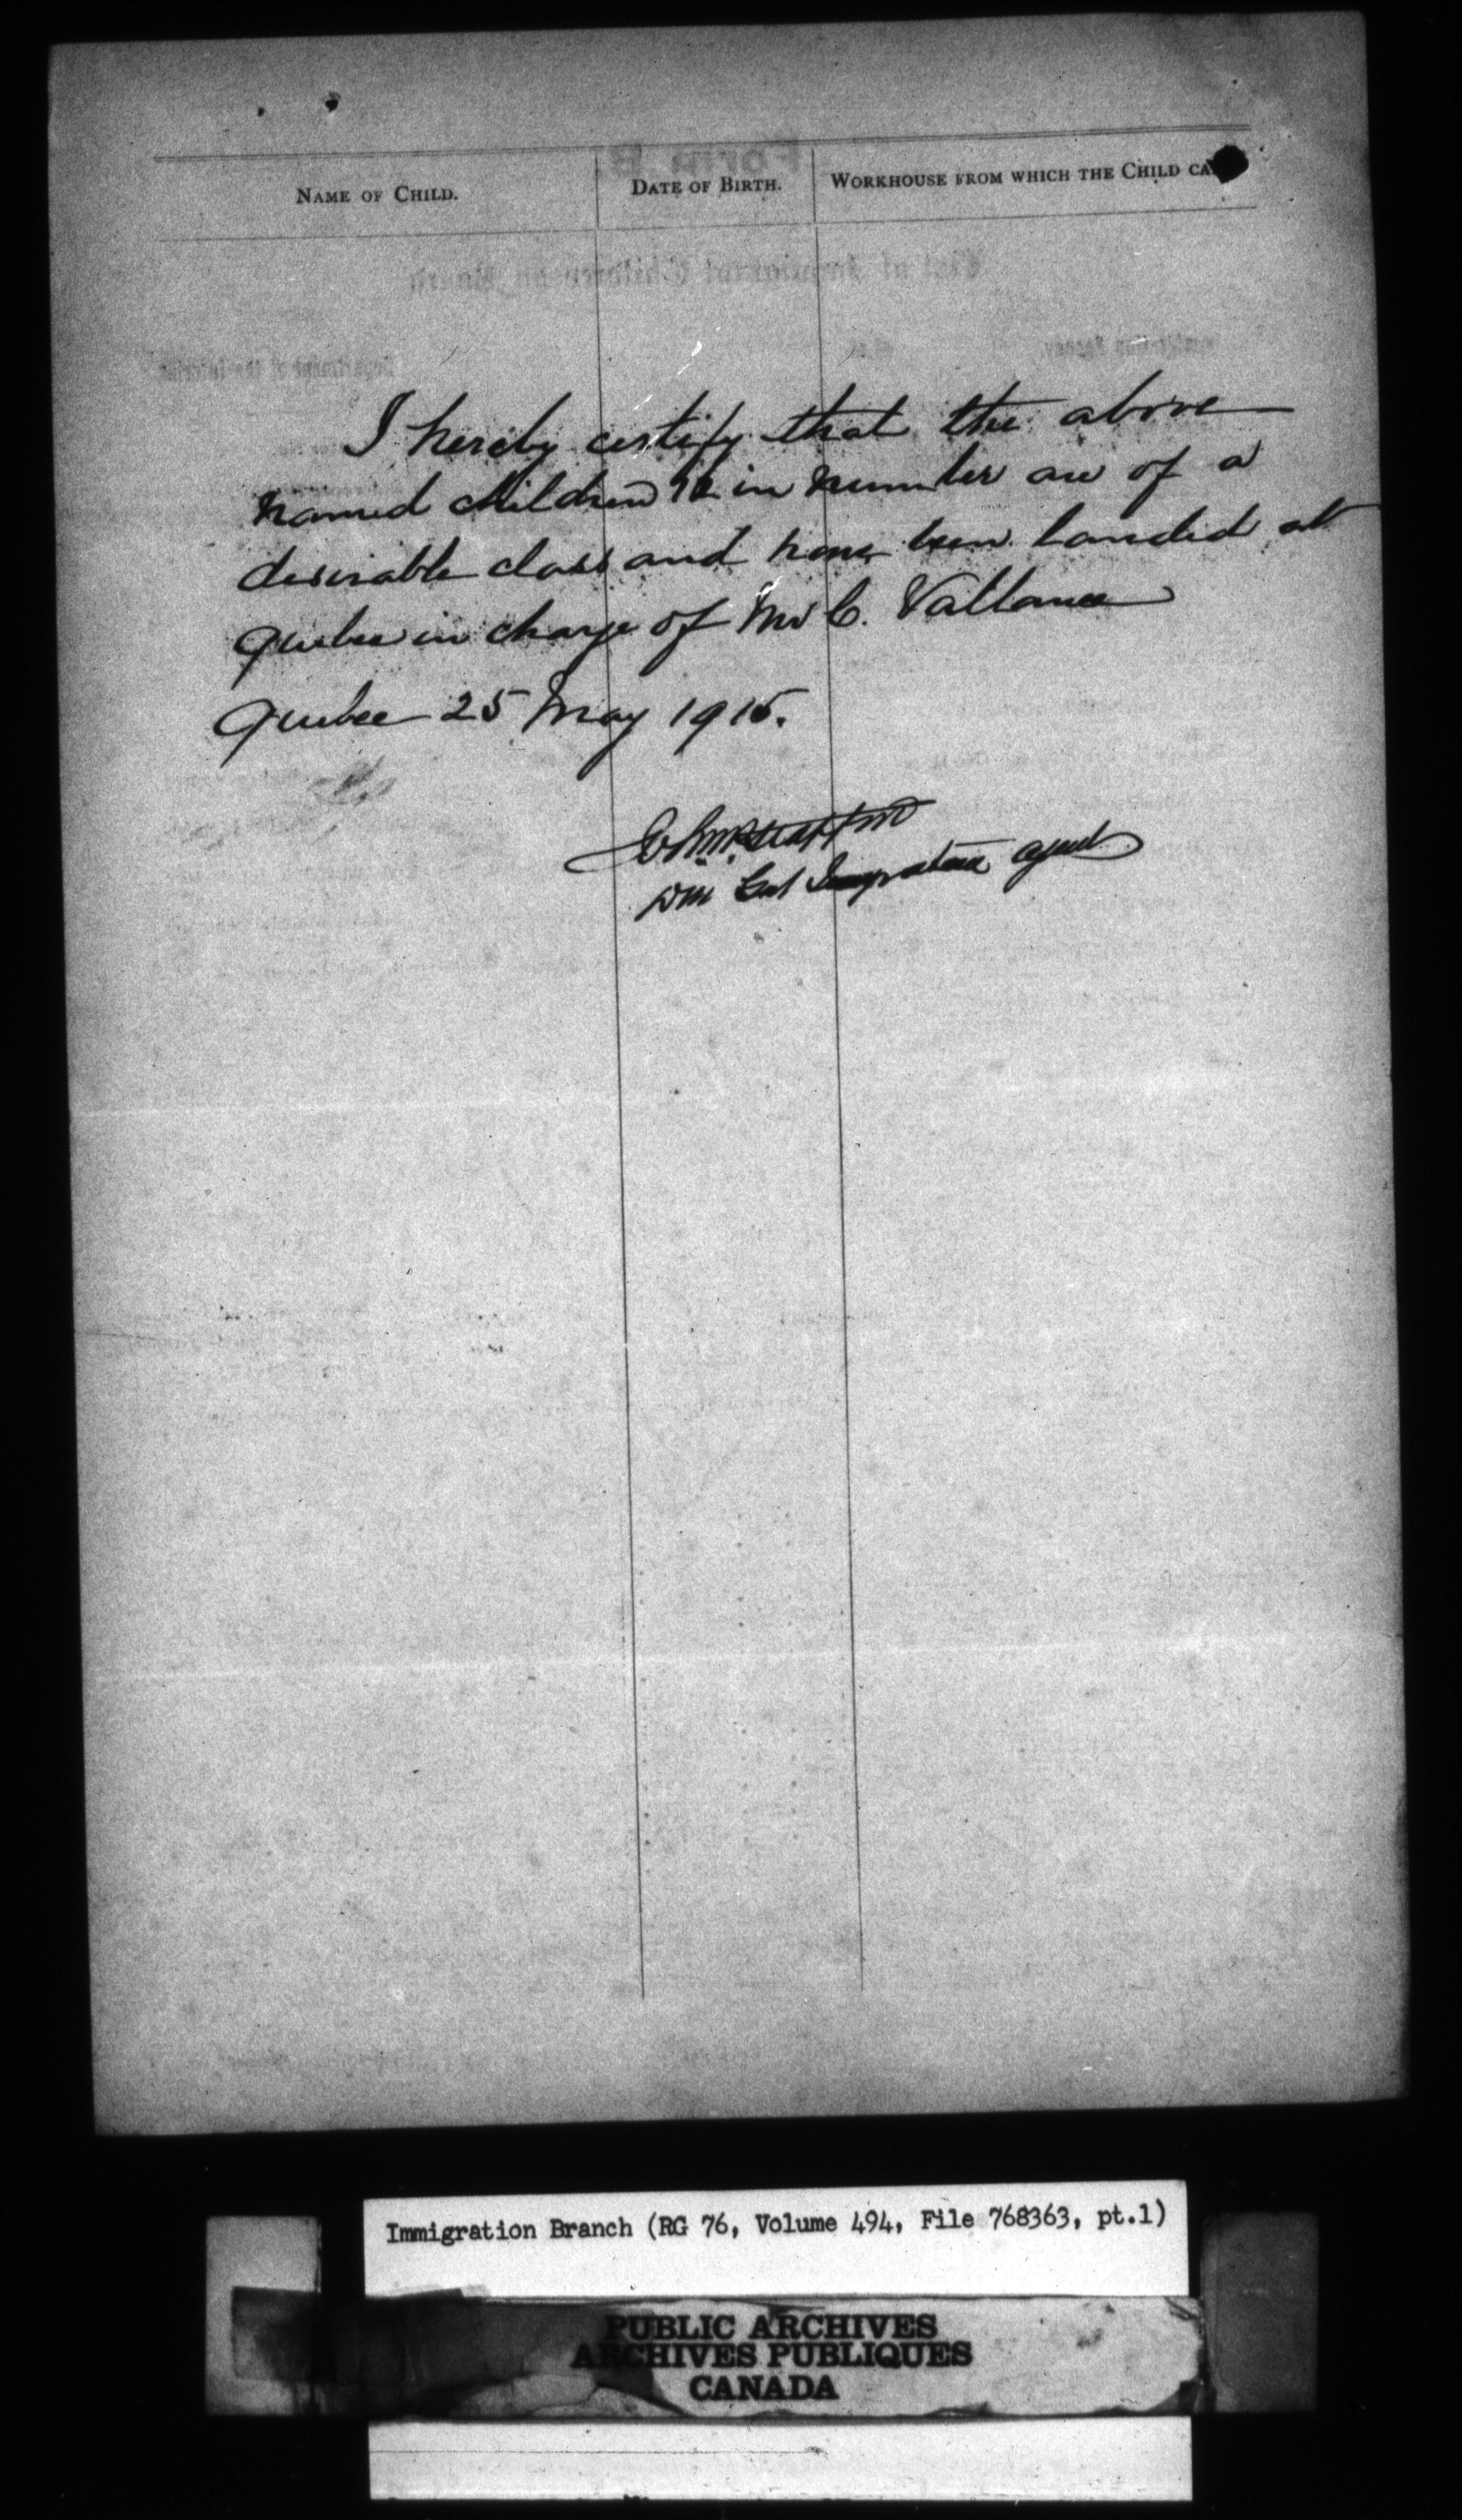 NAME OF CHILD.
DATE OF BIRTH.
WORKHOUSE FROM WHICH THE CHILD CA
I hereby certify that the above
named children in number are of a
desirable class and have been landed at
Quebec in charge of Mr C. Vallance
Quebec 25 May 1915.
Immigration agent
Immigration Branch (RG 76, Volume 494, File 768363, pt.1)
PUBLIC ARCHIVES
ARCHIVES PUBLIQUES
CANADA